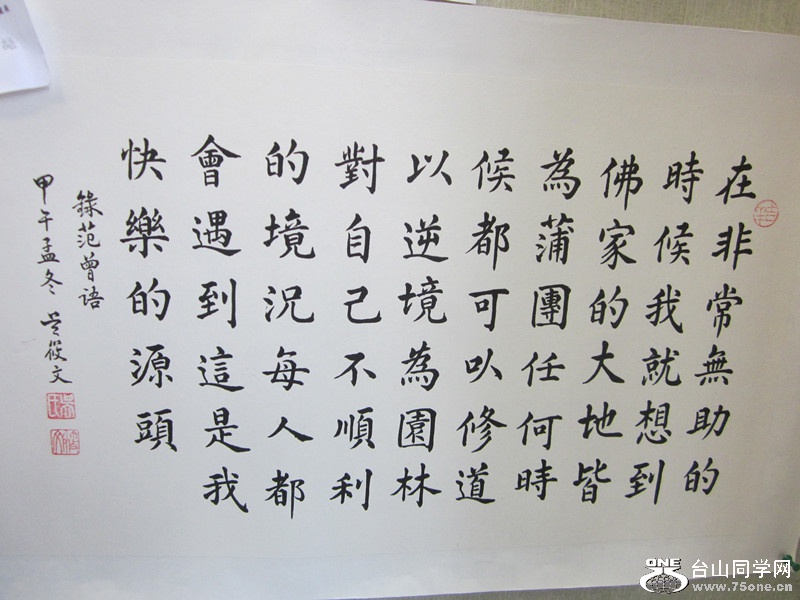 在非常無助的
時候我就想到
佛家的大地皆
為蒲團任何時
候都可以修道
以逆境為園林
對自己不順利
的境況每人都
會遇到這是我
快樂的源頭
錄范曾語
甲午孟冬 吳筱文
ONE
台山同学网
www.75one.cn